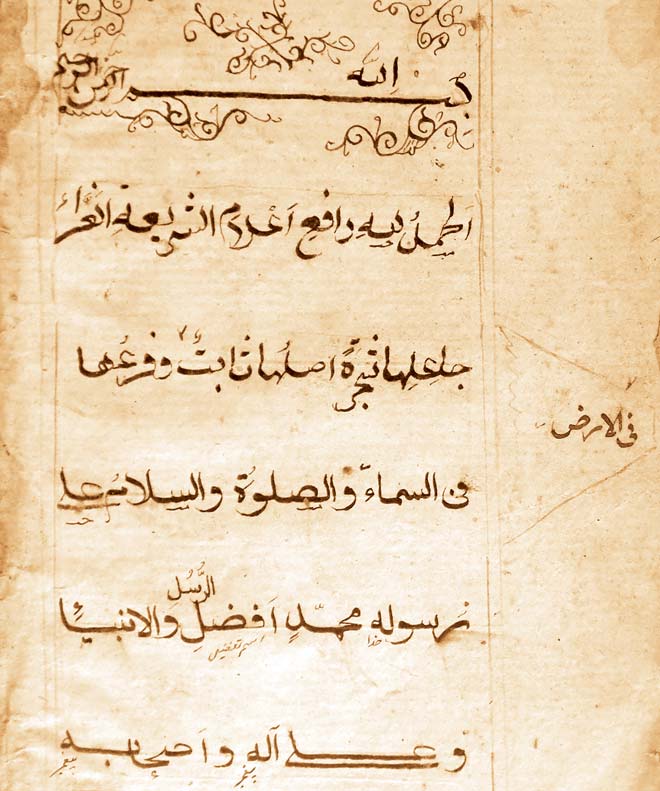 بسم الله الرحمن الرحيم
اَلحمدُ لله رافع اَعْلام الشريعة الغراء
جاعلها شجرةً اصلها ثابتٌ وفرعُها
فى الارض
فى السماء والصلوةُ والسلام على
الرُّسُلِ
رسوله محمّدٍ اَفضلِ والانبياء
خدا اسم تفضيل
وعلى آله واصحابه